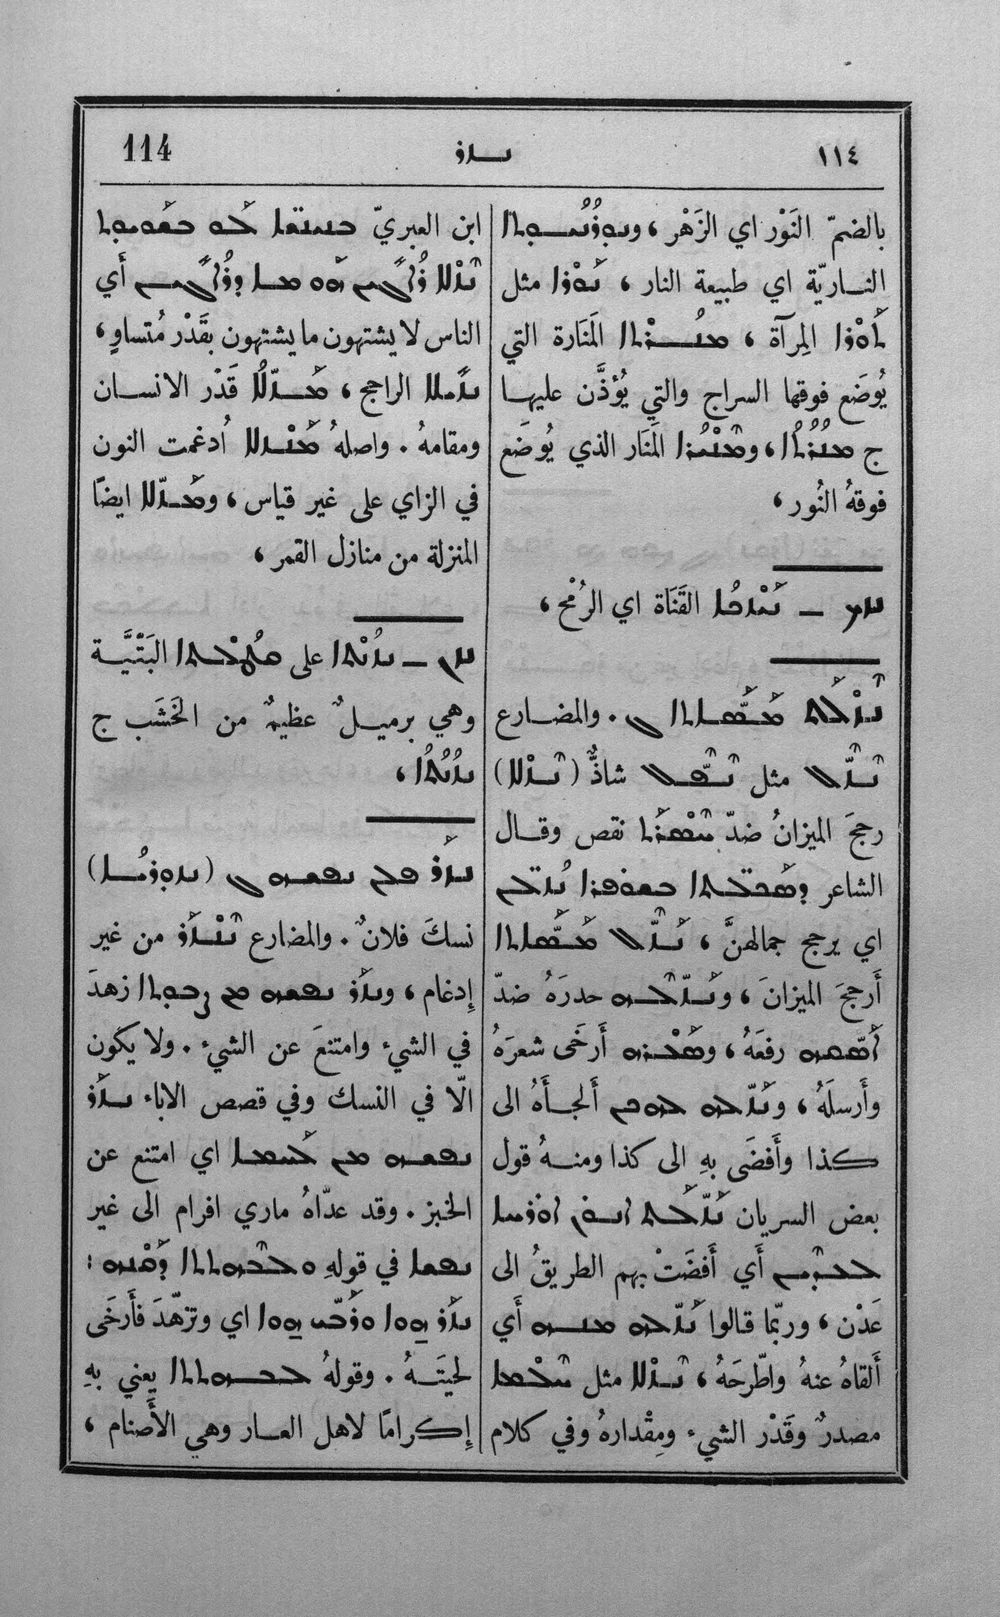 114 ܢܙܪ ١١٤
بالضمّ النَوْر اي الزَهْر ، وܢܘܪܢܝܘܬܐ
الناريّة اي طبيعة النار ، ܢܘܪܐ مثل
ܬܐܘܪܐ المِرآة ، ܡܢܪܬܐ المَنَارة التي
يُوضَع فوقها السراج والتي يُؤذَّن عليها
ج ܡܢܪܬܐ ، وܡܢܗܪܐ المَنَار الذي يُوضَع
فوقهُ النُور ،
ܢܙܟ ــ ܢܝܙܟܐ القَنَاة اي الرُمْح ،
ܢܙܠܬ ܡܣܐܬܐ ܢ . والمضارع
ܢܙܠ مثل ܢܦܠ شاذٌّ (ܢܙܠܐ)
رجحَ الميزانُ ضدّ نقص وقال
الشاعر
اي يرجح جمالهنَّ ، ܢܙܠ ܡܣܐܬܐ
أَرجحَ الميزانَ ، وܢܙܠܗ حدرَهُ ضدّ
ܐܣܩܗ رفعَهُ ، وܣܥܪܗ أَرخَى شعرَهُ
وأَرسلَهُ ، وܢܙܠܗ أَلجأَهُ الى
كذا وأَفضَى بهِ الى كذا ومنهُ قول
بعض السريان ܢܙܠܬ ܐܢܘܢ ܐܘܪܚܐ
ܠܥܕܝܢ أَي أَفضَتْ بهم الطريقُ الى
عَدْن ، وربّما قالوا ܢܙܠܗ ܡܢܗ أَي
أَلقاهُ عنهُ واطّرحَهُ ، ܢܙܠܐ مثل
مصدرٌ وقَدْر الشيء ومِقْدارهُ وفي كلام
ابن العبريّ ܒܢܝܢܫܐ ܠܘ ܒܫܘܝܘܬܐ
ܢܙܠܐ ܪܐܓܝܢ ܗܘ ܡܐ ܕܪܐܓܝܢ أَي
الناس لا يشتهون ما يشتهون بقَدْر مُتساوٍ ،
ܢܙܝܠܐ الراجح ، ܡܙܠܐ قَدْر الانسان
ومقامهُ . واصلهُ ܡܢܙܠܐ اُدغمت النون
في الزاي على غير قياس ، وܡܙܠܐ ايضًا
المنزلة من منازل القمر ،
ܢܙܢ ــ ܢܙܢܬܐ على البَتْيَّة
وهي برميلٌ عظيمٌ من الخَشَب ج
ܢܙܢܬܐ ،
ܢܙܪ ܦܠܢ ܢܦܫܗ ܢ (ܢܙܘܪܝܐ)
نسكَ فلانٌ . والمضارع ܢܢܙܪ من غير
إِدغام ، وܢܙܪ ܢܦܫܗ ܡܢ ܨܒܘܬܐ زهدَ
في الشيء وامتنعَ عن الشيء . ولا يكون
الّا في النسك وفي قصص الاباء ܢܙܪ
ܢܦܫܗ ܡܢ ܠܚܡܐ اي امتنع عن
الخبز . وقد عدّاهُ ماري افرام الى غير
ܢܦܫܐ في قولهِ ܘܠܒܗܬܬܐ :
ܢܙܪ ܗܘܐ ܘܪܒܝ ܗܘܐ اي وتزهّدَ فأَرخَى
لحيَتَهُ . وقولهُ ܠܒܗܬܬܐ يعني بهِ
إِكرامًا لاهل العار وهي الأَصنام ،